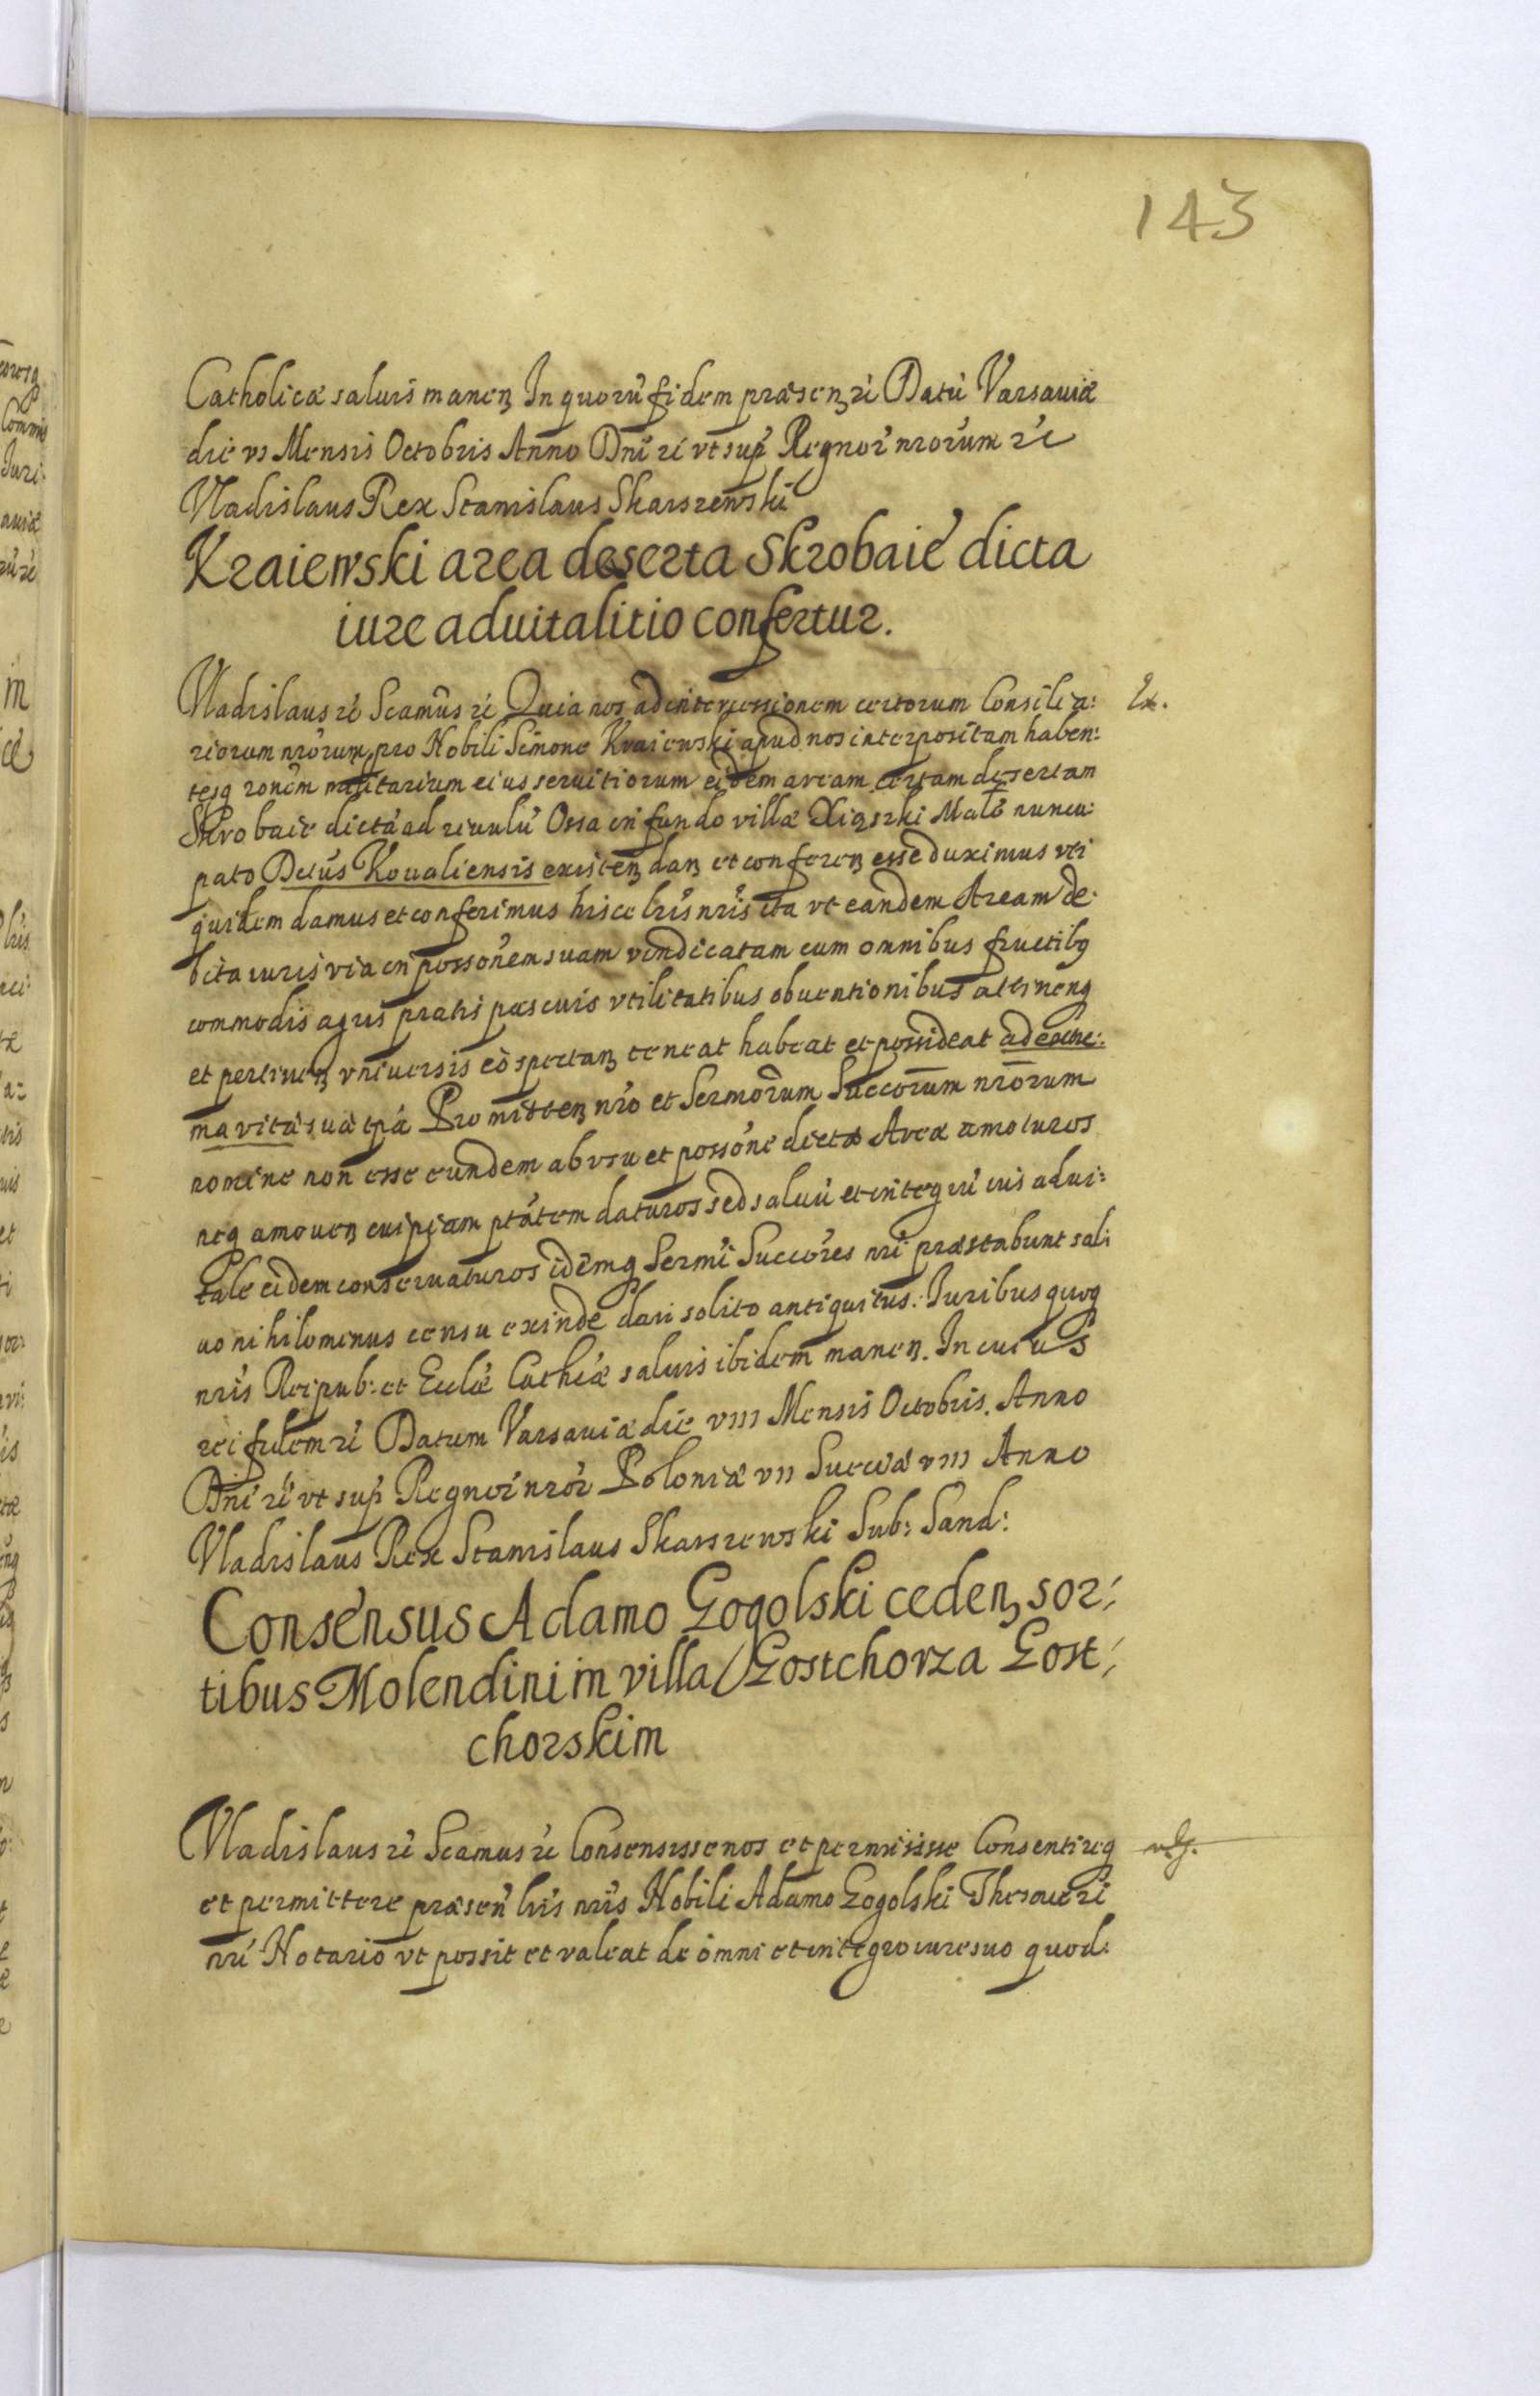 143
Catholicæ saluis manen In quorũ fidem præsen rė Datũ Varsauiæ
die vi Mensis Octobris Anno Dni rė vt sup Regnor nrorum rė
Vladislaus Rex Stanislaus Skarszewski
Kraiewski area deserta Skrobaie dicta
iure aduitalitio confertur.
Vladislaus rė Scamus rė Quia nos ad intercessionem certorum Consilia:
riorum nrorum pro Nobili Simone Kraiewski apud nos interpositam haben:
tesq ronem militarium eius seruitiorum eidem aream certam desertam
Skrobaie dictá ad riuulũ Ossa in fundo villæ Xiązki Małe nuncu:
pato Dctus Koualiensis existen dan et conferen esse duximus vti
quidem damus et conferimus hisce lris nris ita vt eandem Aream de:
bita iuris via in possonem suam vendicatam cum omnibus fructibq
commodis agris pratis pascuis vtilitatibus obuentionibus attinenq
et pertinen vniuersis eò spectan teneat habeat et possideat ad extre:
ma vitæ suæ tpá Promitten nro et Sermorum Succorum nrorum
nomine non esse eundem ab vsu et possone dictæ Areæ amoturos
neq amouen cuipiam ptátem daturos sed saluũ et integrũ ius adui:
tale eidem conseruaturos idemq Sermi Succores nri præstabunt sal:
uo nihilominus censu exinde dari solito antiquitus: Iuribus quoq
nris Reipub: et Eccliæ Cathcæ saluis ibidem manen. In cuius
rei fidem rė Datum Varsauiæ die viii Mensis Octobris. Anno
Dni rė vt sup Regnor nror Poloniæ vii Sueciæ viii Anno
Vladislaus Rex Stanislaus Skarszewski Sub: Sand:
Consensus Adamo Gogolski ceden sor:
tibus Molendini in villa Gostchorza Gost:
chorskim
Vladislaus rė Scamus rė Consensisse nos et permisisse Consentireq
et permittere præsen lris nris Nobili Adamo Gogolski Thesauri
nri Notario vt possit et valeat de omni et integro iure suo quod: